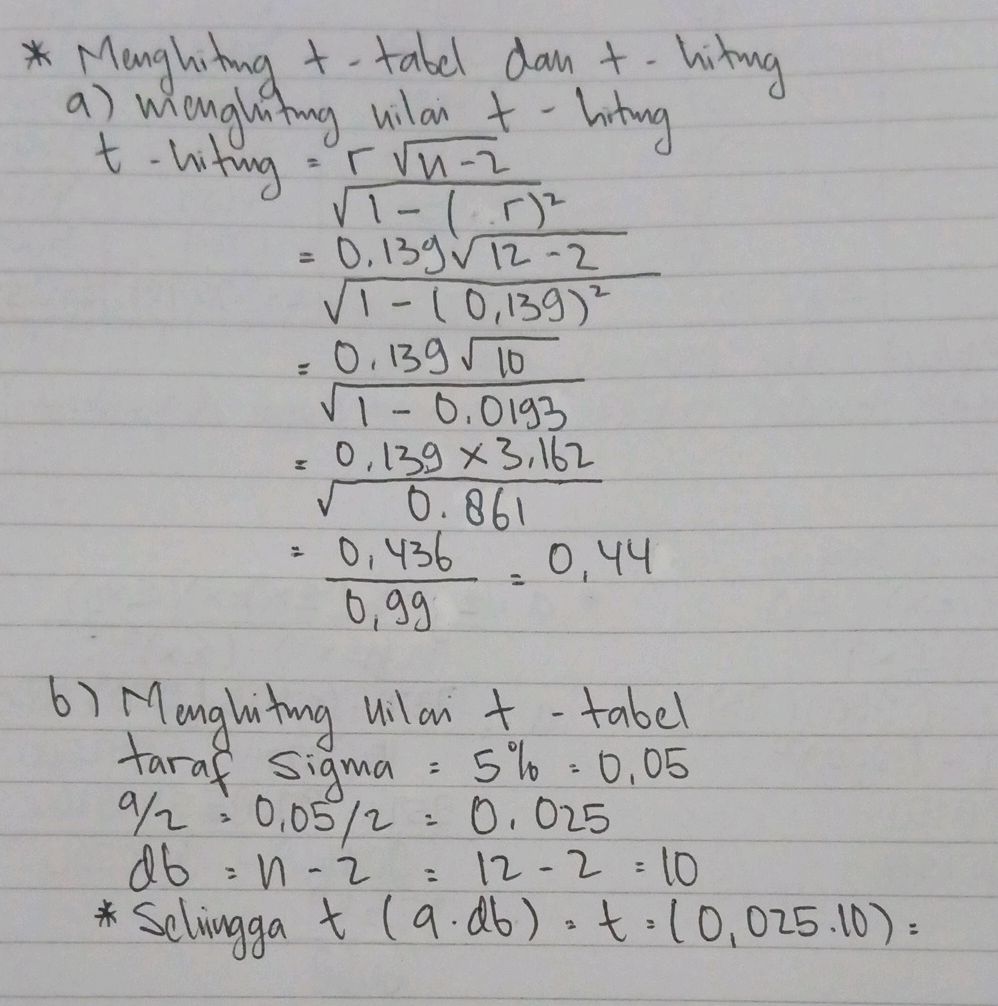 * Menghitung t - tabel dan t - hitung
a) menghitung nilai t - hitung
t - hitung = r √n-2
√1 - ( r)²
= 0.139 √12 - 2
√1 - (0,139)²
= 0.139 √10
√1 - 0.0193
= 0,139 × 3,162
√ 0.861
= 0,436 = 0,44
0,99
b) Menghitung nilai t - tabel
taraf sigma = 5% = 0,05
a/2 = 0,05/2 = 0.025
db = n - 2 = 12 - 2 = 10
* Sehingga t (a.db) = t = (0,025.10) =